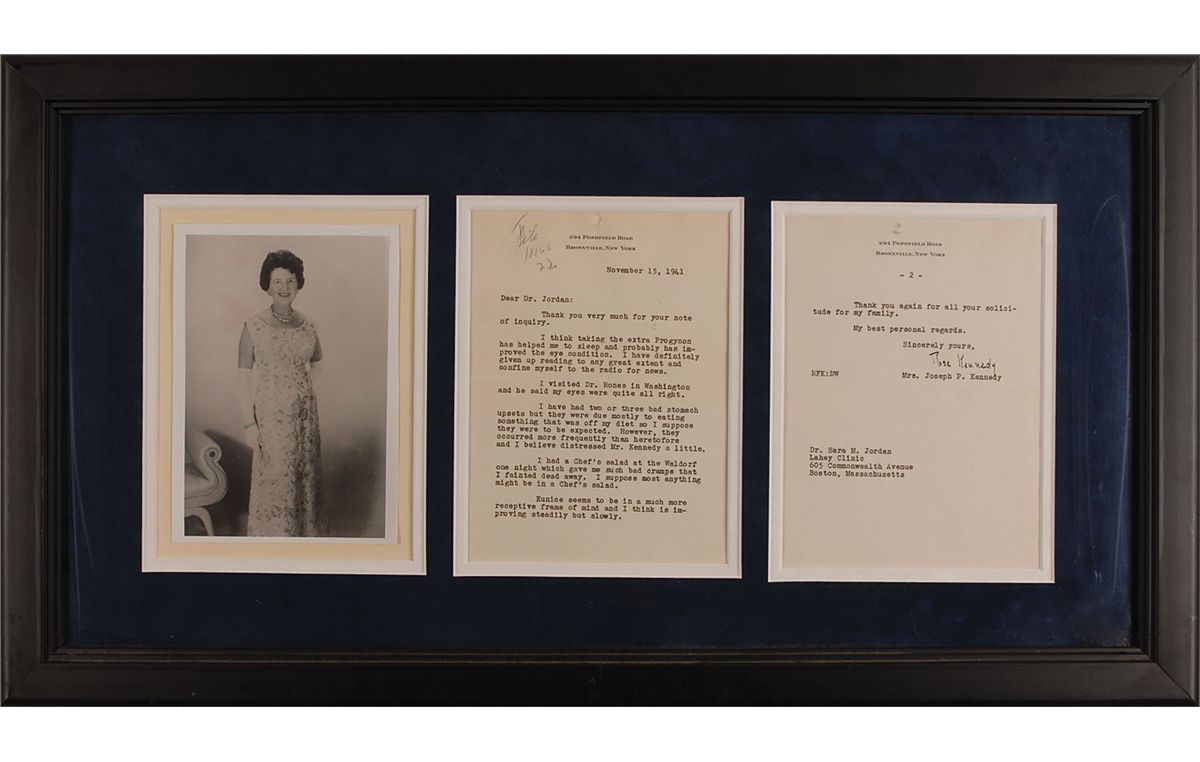 294 Pondfield Road
Bronxville, New York
November 15, 1941
Dear Dr. Jordan:
Thank you very much for your note
of inquiry.
I think taking the extra Progynon
has helped me to sleep and probably has im-
proved the eye condition. I have definitely
given up reading to any great extent and
confine myself to the radio for news.
I visited Dr. Rones in Washington
and he said my eyes were quite all right.
I have had two or three bad stomach
upsets but they were due mostly to eating
something that was off my diet so I suppose
they were to be expected. However, they
occurred more frequently than heretofore
and I believe distressed Mr. Kennedy a little.
I had a Chef's salad at the Waldorf
one night which gave me such bad cramps that
I fainted dead away. I suppose most anything
might be in a Chef's salad.
Eunice seems to be in a much more
receptive frame of mind and I think is im-
proving steadily but slowly.
294 Pondfield Road
Bronxville, New York
- 2 -
Thank you again for all your solici-
tude for my family.
My best personal regards.
Sincerely yours,
Rose Kennedy
RFK:DW Mrs. Joseph P. Kennedy
Dr. Sara M. Jordan
Lahey Clinic
605 Commonwealth Avenue
Boston, Massachusetts